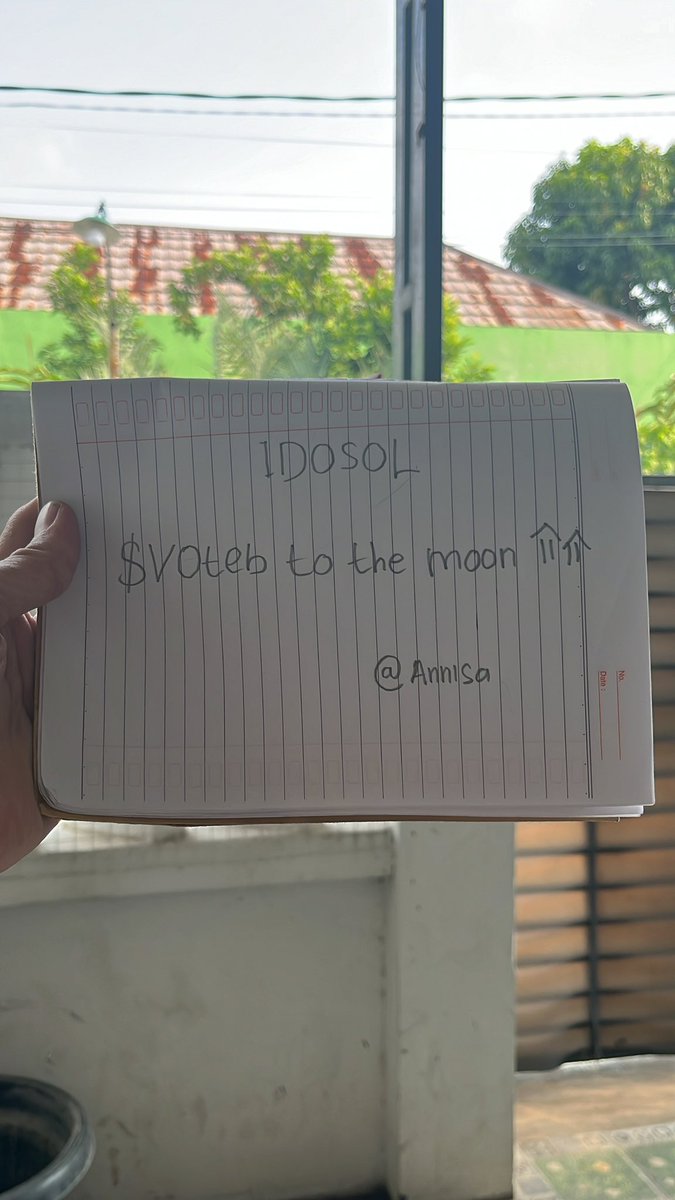 IDOSOL
$VOteb to the moon
@Annisa
No.
Date :